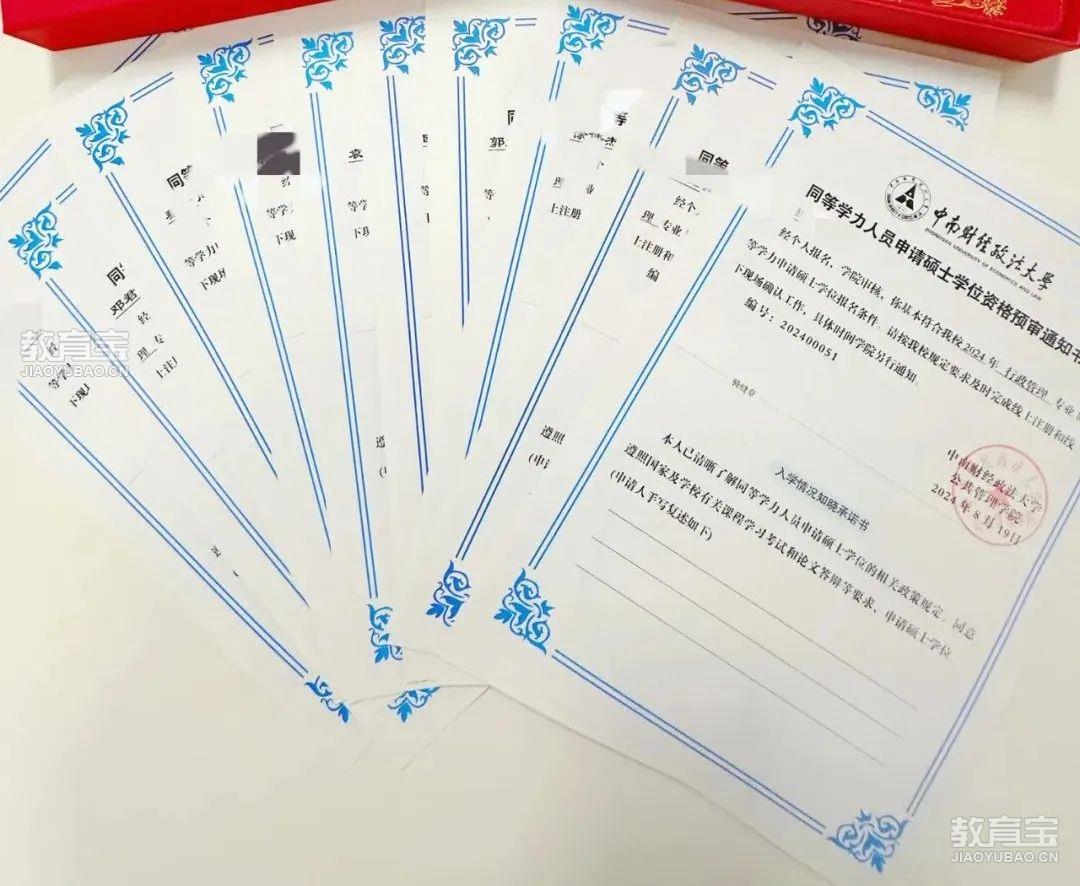 中南财经政法大学
ZHONGNAN UNIVERSITY OF ECONOMICS AND LAW
同等学力人员申请硕士学位资格预审通知书
经个人报名，学院审核，你基本符合我校2024年 行政管理 专业
等学力申请硕士学位报名条件。请按我校规定要求及时完成线上注册和线
下现场确认工作，具体时间学院另行通知。
编号：202400051
骑缝章
中南财经政法大学
公共管理学院
2024年8月19日
入学情况知晓承诺书
本人已清晰了解同等学力人员申请硕士学位的相关政策规定，同意
遵照国家及学校有关课程学习考试和论文答辩等要求，申请硕士学位
(申请人手写复述如下)
同等
经个
理 专业
上注册和
编
等
业
上注册
遵照
(申请
同
郭
等
袁
等学
下现
等学
下现
同等
等学力
下现场
同
邓君
经
理 专
上注
等学
下现
教育宝
JIAOYUBAO.CN
教育宝
JIAOYUBAO.CN